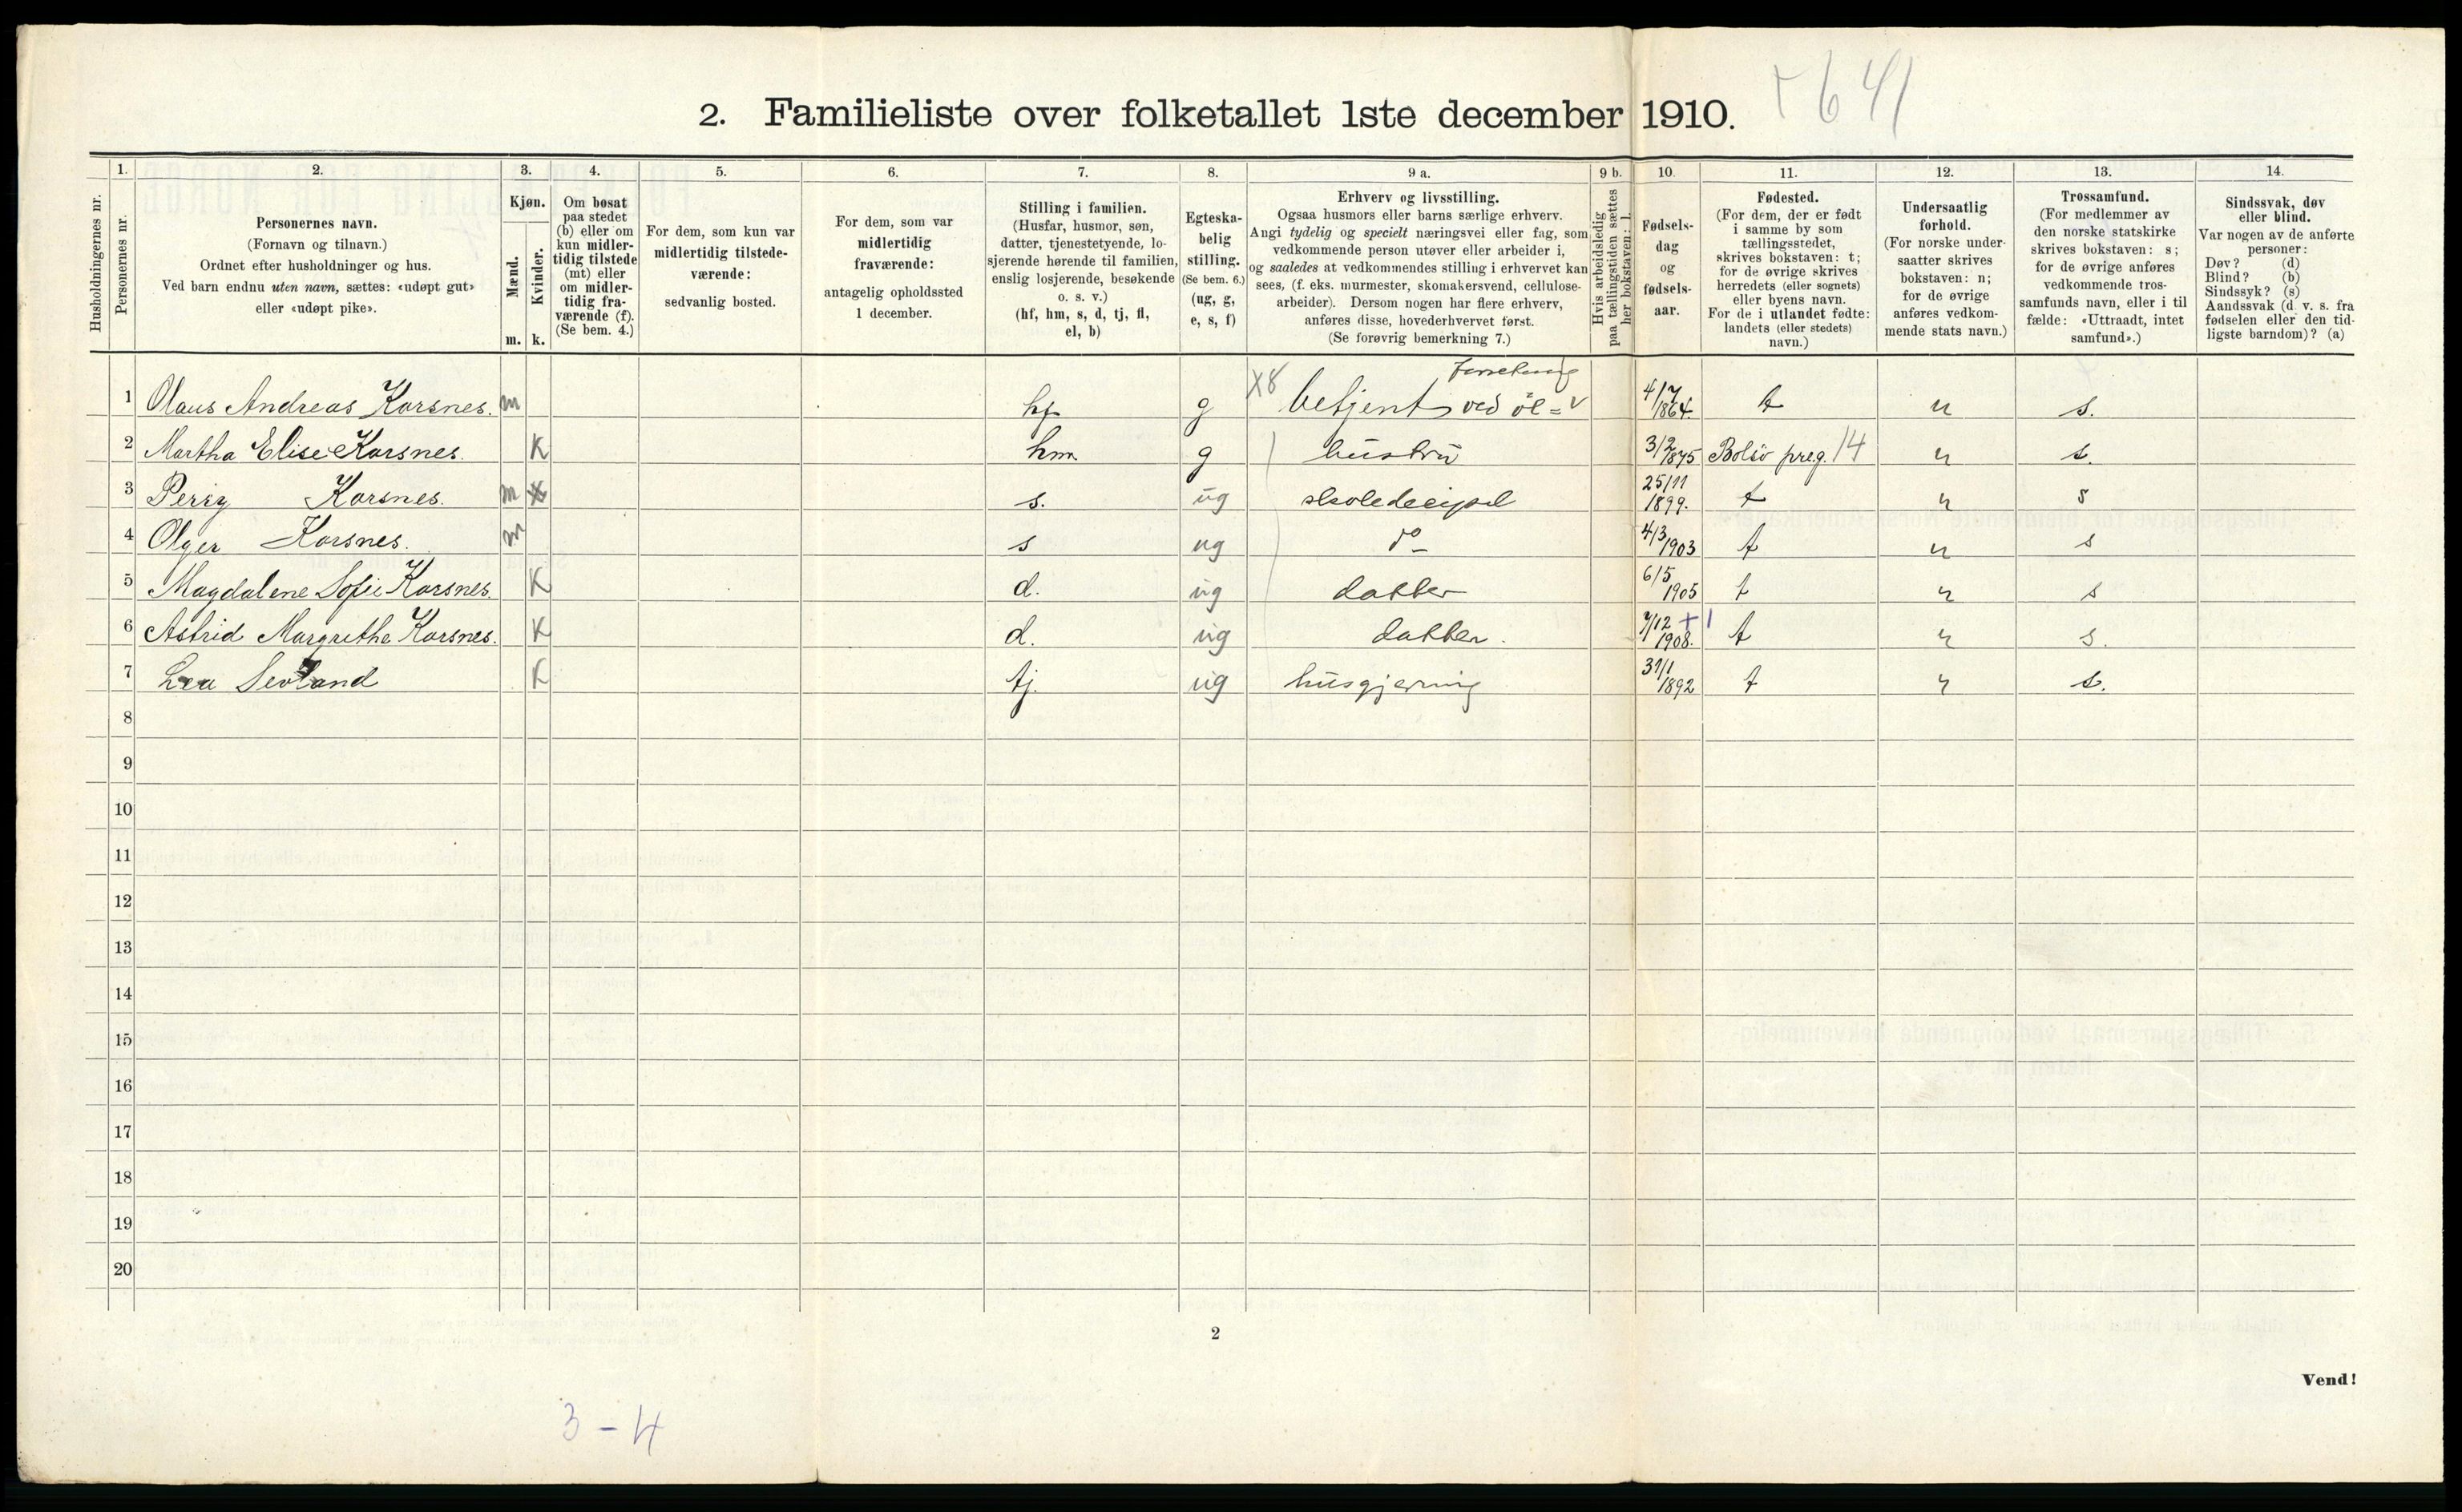 2. Familieliste over folketallet 1ste december 1910.
641
Husholdningernes nr.
1.
Personernes nr.
2.
Personernes navn.
(Fornavn og tilnavn.)
Ordnet efter husholdninger og hus.
Ved barn endnu uten navn, sættes: «udøpt gut»
eller «udøpt pike».
3.
Kjøn.
Mænd.
Kvinder.
m. k.
4.
Om bosat
paa stedet
(b) eller om
kun midler-
tidig tilstede
(mt) eller
om midler-
tidig fra-
værende (f).
(Se bem. 4.)
5.
For dem, som kun var
midlertidig tilstede-
værende:
sedvanlig bosted.
6.
For dem, som var
midlertidig
fraværende:
antagelig opholdssted
1 december.
7.
Stilling i familien.
(Husfar, husmor, søn,
datter, tjenestetyende, lo-
sjerende hørende til familien,
enslig losjerende, besøkende
o. s. v.)
(hf, hm, s, d, tj, fl,
el, b)
8.
Egteska-
belig
stilling.
(Se bem. 6.)
(ug, g,
e, s, f)
9 a.
Erhverv og livsstilling.
Ogsaa husmors eller barns særlige erhverv.
Angi tydelig og specielt næringsvei eller fag, som
vedkommende person utøver eller arbeider i,
og saaledes at vedkommendes stilling i erhvervet kan
sees, (f. eks. murmester, skomakersvend, cellulose-
arbeider). Dersom nogen har flere erhverv,
anføres disse, hovederhvervet først.
(Se forøvrig bemerkning 7.)
9 b.
Hvis arbeidsledig
paa tællingstiden sættes
her bokstaven: l.
10.
Fødsels-
dag
og
fødsels-
aar.
11.
Fødested.
(For dem, der er født
i samme by som
tællingsstedet,
skrives bokstaven: t;
for de øvrige skrives
herredets (eller sognets)
eller byens navn.
For de i utlandet fødte:
landets (eller stedets)
navn.)
12.
Undersaatlig
forhold.
(For norske under-
saatter skrives
bokstaven: n;
for de øvrige
anføres vedkom-
mende stats navn.)
13.
Trossamfund.
(For medlemmer av
den norske statskirke
skrives bokstaven: s;
for de øvrige anføres
vedkommende tros-
samfunds navn, eller i til
fælde: «Uttraadt, intet
samfund».)
14.
Sindssvak, døv
eller blind.
Var nogen av de anførte
personer:
Døv? (d)
Blind? (b)
Sindssyk? (s)
Aandssvak (d. v. s. fra
fødselen eller den tid-
ligste barndom)? (a)
1 Olaus Andreas Korsnes. m hf g X8 betjent ved øl= 4/7 1864. t n s.
2 Martha Elise Korsnes. K hm g hustru 3/2 1875 Bolsø preg. 14 n s.
3 Korsnes. m s. ug skoledecipel 25/11 1899. t n s
4 Olger Korsnes. m s ug do 4/3 1903 t n s
5 Magdalene Sofie Korsnes. K d. ug datter 6/5 1905 t n s
6 Astrid Margrethe Korsnes. K d. ug datter. 7/12 +1 1908. t n s.
7 Lea K tj. ug husgjerning 31/1 1892 t n s.
8
9
10
11
12
13
14
15
16
17
18
19
20
2
Vend!
3-4